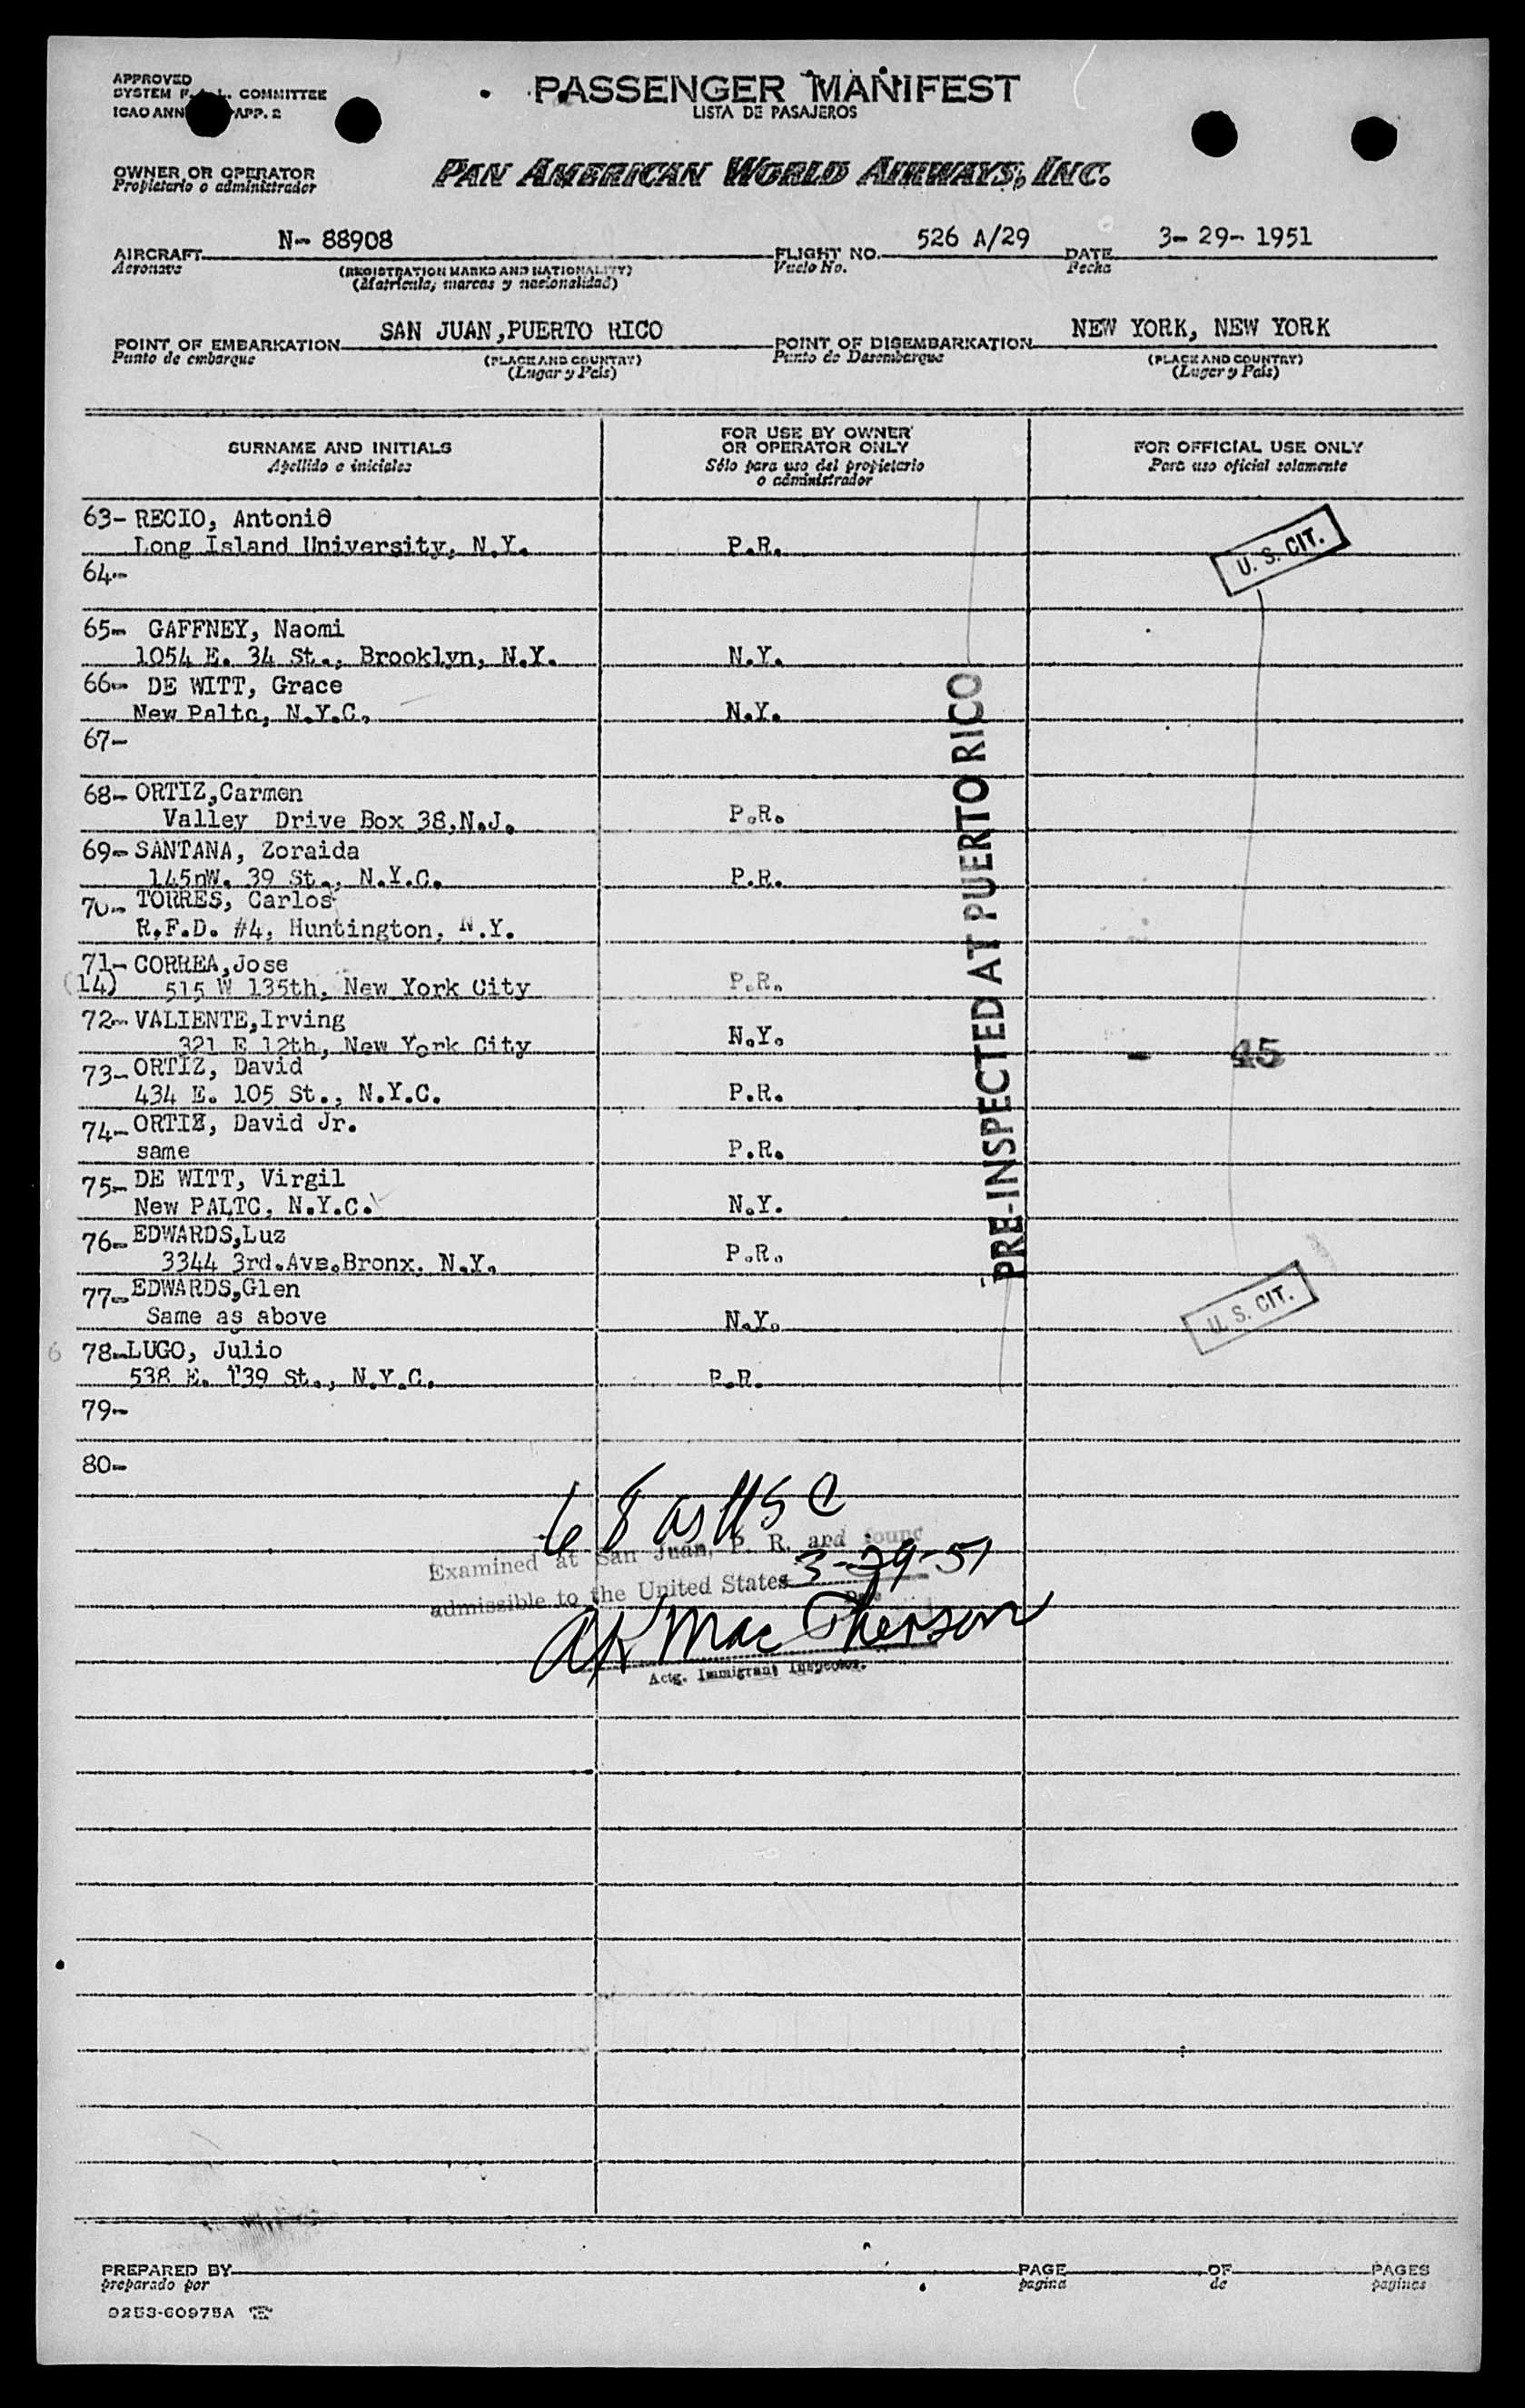 APPROVED
SYSTEM F. A. L. COMMITTEE
ICAO ANN APP. 2
PASSENGER MANIFEST
LISTA DE PASAJEROS
OWNER OR OPERATOR
Propietario o administrador
PAN AMERICAN WORLD AIRWAYS, INC.
AIRCRAFT N- 88908 FLIGHT NO. 526 A/29 DATE 3- 29- 1951
Aeronave (REGISTRATION MARKS AND NATIONALITY) Vuelo No. Fecha
(Matricula; marcas y nacionalidad)
POINT OF EMBARKATION SAN JUAN,PUERTO RICO POINT OF DISEMBARKATION NEW YORK, NEW YORK
Punto de embarque (PLACE AND COUNTRY) Punto de Desembarque (PLACE AND COUNTRY)
(Lugar y País) (Lugar y País)
SURNAME AND INITIALS
Apellido e iniciales
FOR USE BY OWNER
OR OPERATOR ONLY
Sólo para uso del propietario
o administrador
FOR OFFICIAL USE ONLY
Para uso oficial solamente
63- RECIO, Antonio
Long Island University, N.Y. P.R.
U. S. CIT.
64-
65- GAFFNEY, Naomi
1054 E. 34 St., Brooklyn, N.Y. N.Y.
66- DE WITT, Grace
New Paltc, N.Y.C. N.Y.
67-
68- ORTIZ,Carmen
Valley Drive Box 38,N.J. P.R.
69- SANTANA, Zoraida
145nW. 39 St., N.Y.C. P.R.
70- TORRES, Carlos
R.F.D. #4, Huntington, N.Y.
71- CORREA,Jose
(14) 515 W 135th, New York City P.R.
72- VALIENTE,Irving
321 E 12th, New York City N.Y.
- 45
73- ORTIZ, David
434 E. 105 St., N.Y.C. P.R.
74- ORTIZ, David Jr.
same P.R.
75- DE WITT, Virgil
New PALTC, N.Y.C. N.Y.
76- EDWARDS,Luz
3344 3rd.Ave.Bronx, N.Y. P.R.
77- EDWARDS,Glen
Same as above N.Y.
U. S. CIT.
6 78- LUGO, Julio
538 E. 139 St., N.Y.C. P.R.
79-
80-
PRE-INSPECTED AT PUERTO RICO
68 as USC
Examined at San Juan, P. R. and found
admissible to the United States 3-29-51
Date
AR MacPherson
Actg. Immigrant Inspector.
PREPARED BY PAGE OF PAGES
preparado por pagina de paginas
9253-60975A